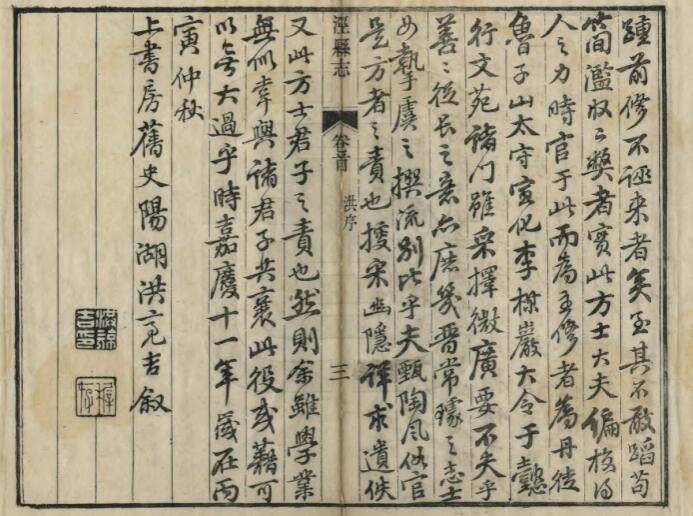 踵前修不誣来者矣至其不敢蹈苟
簡濫收之獘者實此方士大夫編校得
人之力時官于此而為主修者為丹徒
魯子山太守宣化李楳巖大令于懿
行文苑諸門雖采擇微廣要不失乎
善善從長之意亦庶幾晋常璩之志士
女摯虞之撰流別比乎夫甄陶風俗官
是方者之責也搜采幽隱詳求遺佚
涇縣志
卷首
洪序
三
又此方士君子之責也然則余雖學業
無似幸與諸君子共襄此役或藉可
以無大過乎時嘉慶十一年歲在丙
寅仲秋
上書房舊史陽湖洪亮吉叙